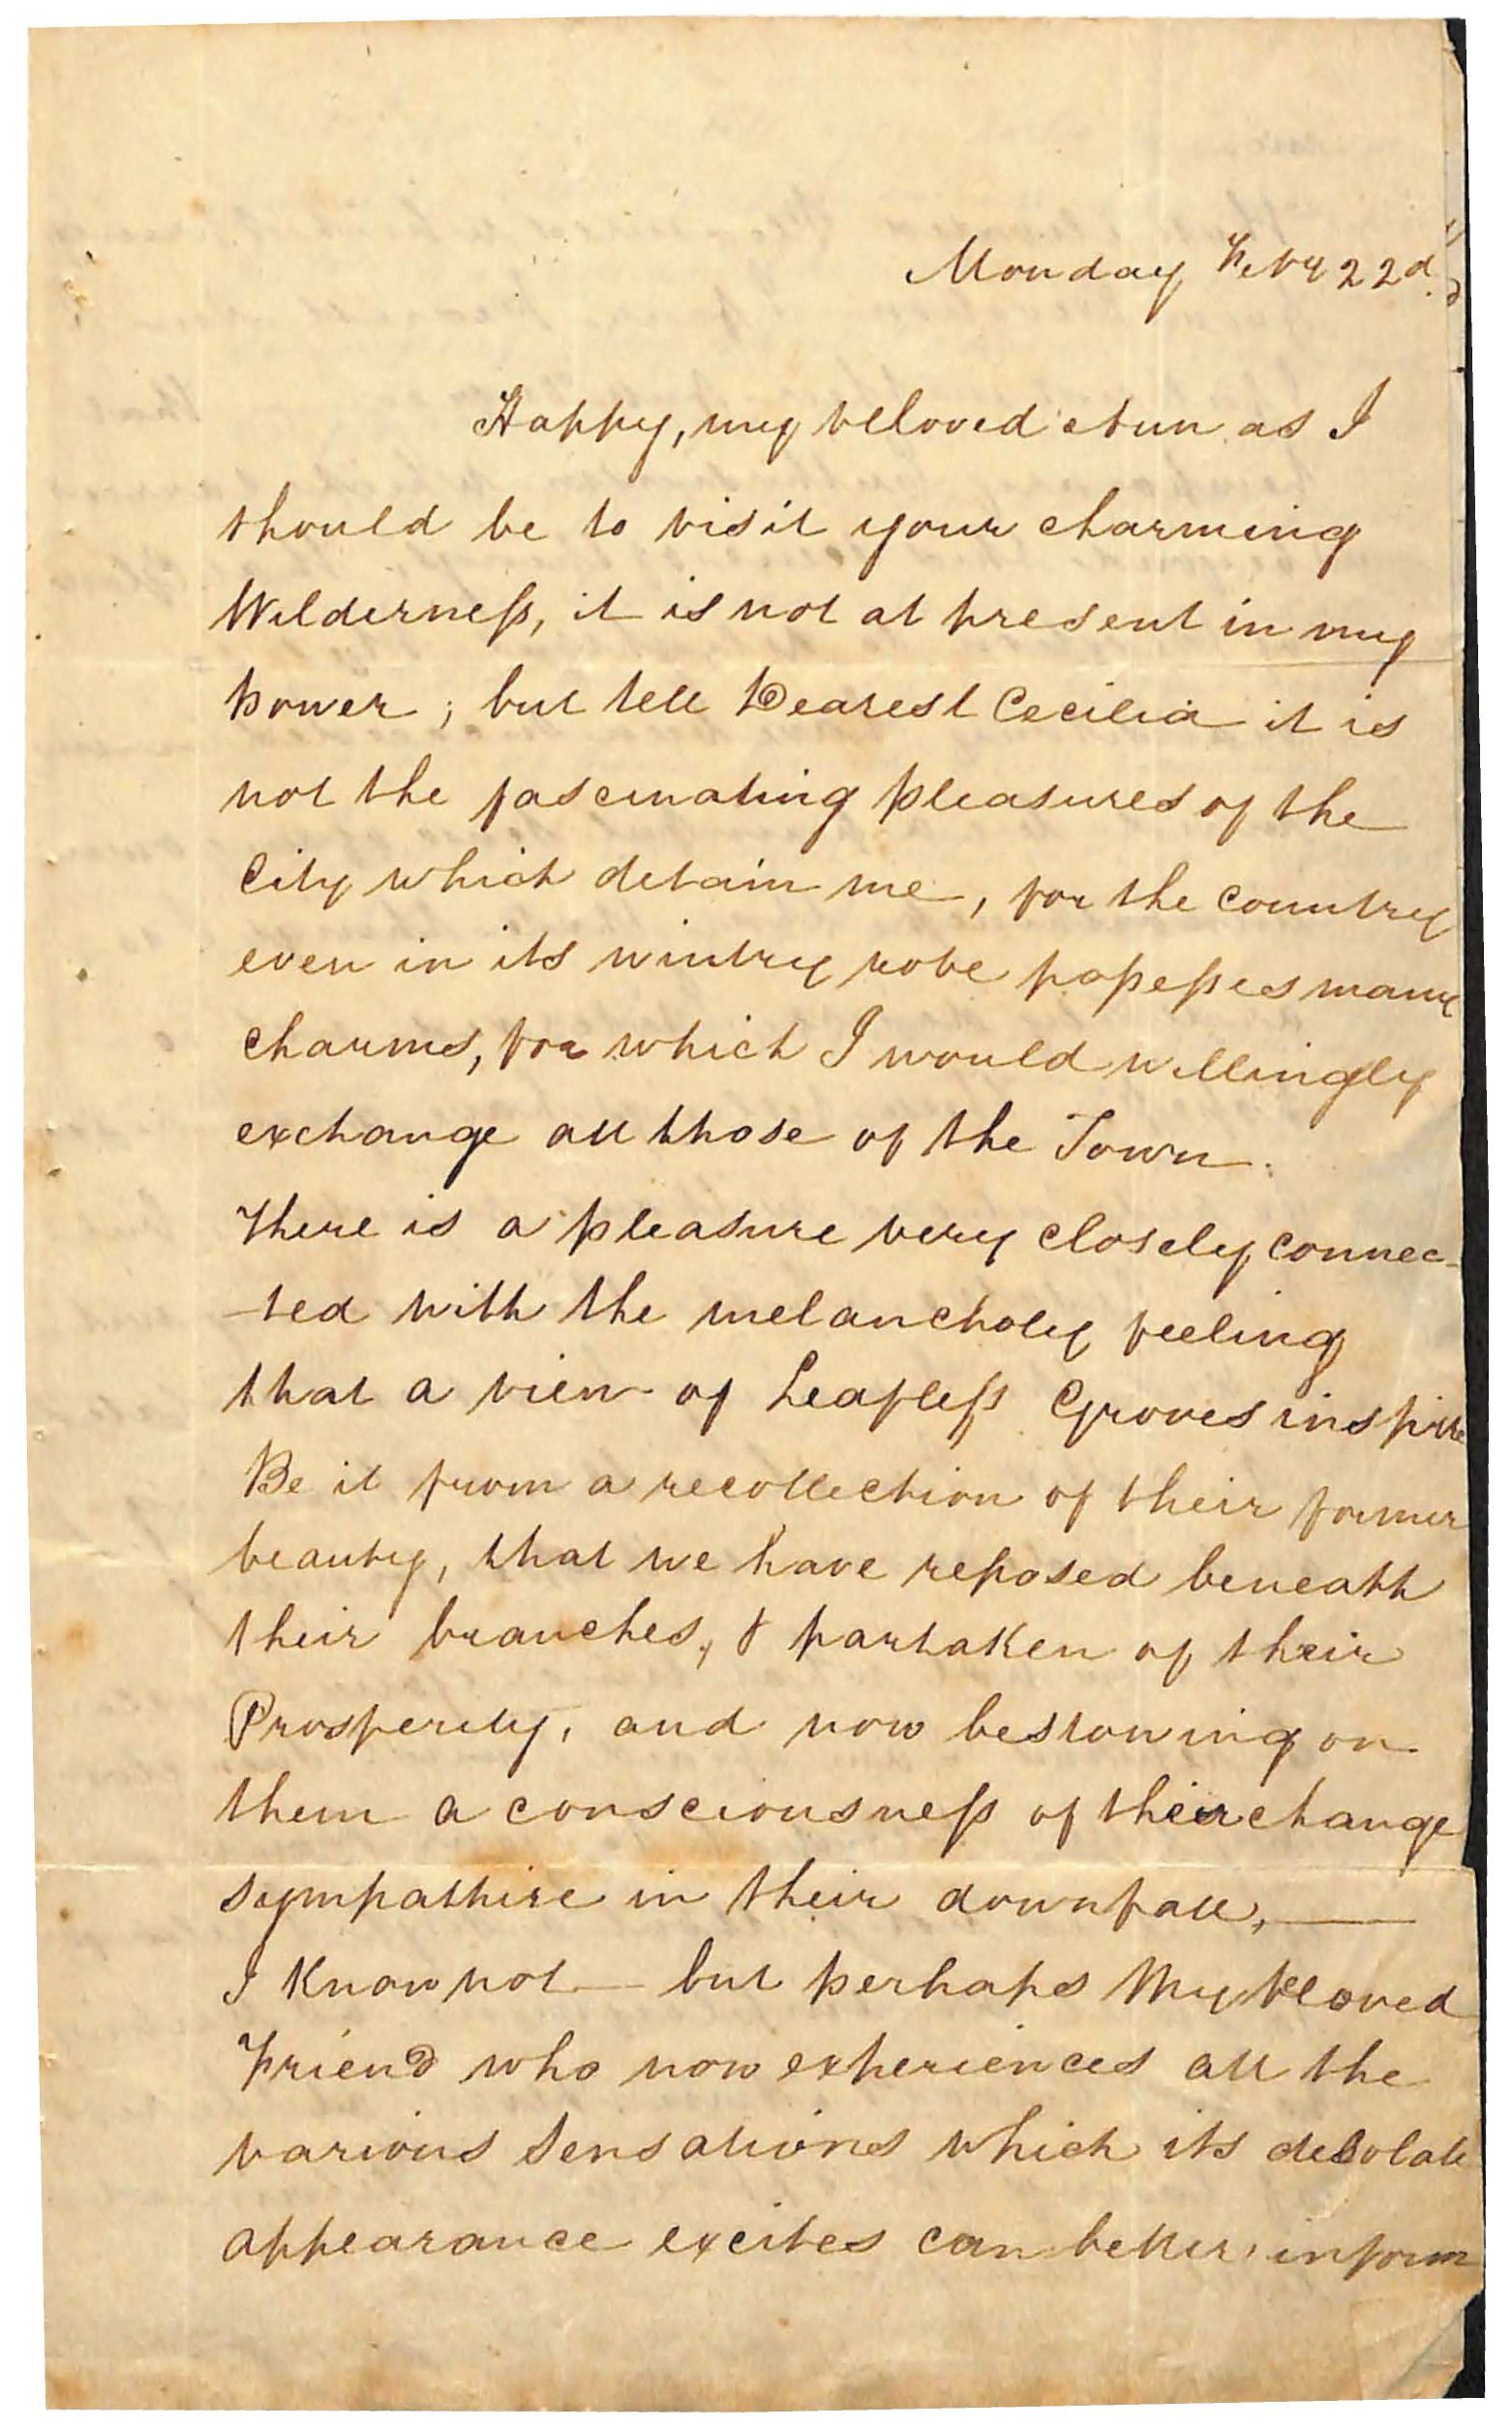 Monday Feby 22d.
Happy, my beloved Aun as I
should be to visit your charming
Wilderness, it is not at present in my
power; but tell Dearest Cecilia it is
not the fascinating pleasures of the
City which detain me, for the Country
even in its wintry robe possesses many
charms, for which I would willingly
exchange all those of the Town.
There is a pleasure very closely connec-
-ted with the melancholy feeling
that a view of Leafless Groves inspire
Be it from a recollection of their former
beauty, that we have reposed beneath
their branches, & partaken of their
Prosperity, and now bestowing on
them a consciousness of their change
sympathise in their downfall, —
I Know not — but perhaps My beloved
Friend who now experiences all the
various sensations which its desolate
appearance excites can better inform